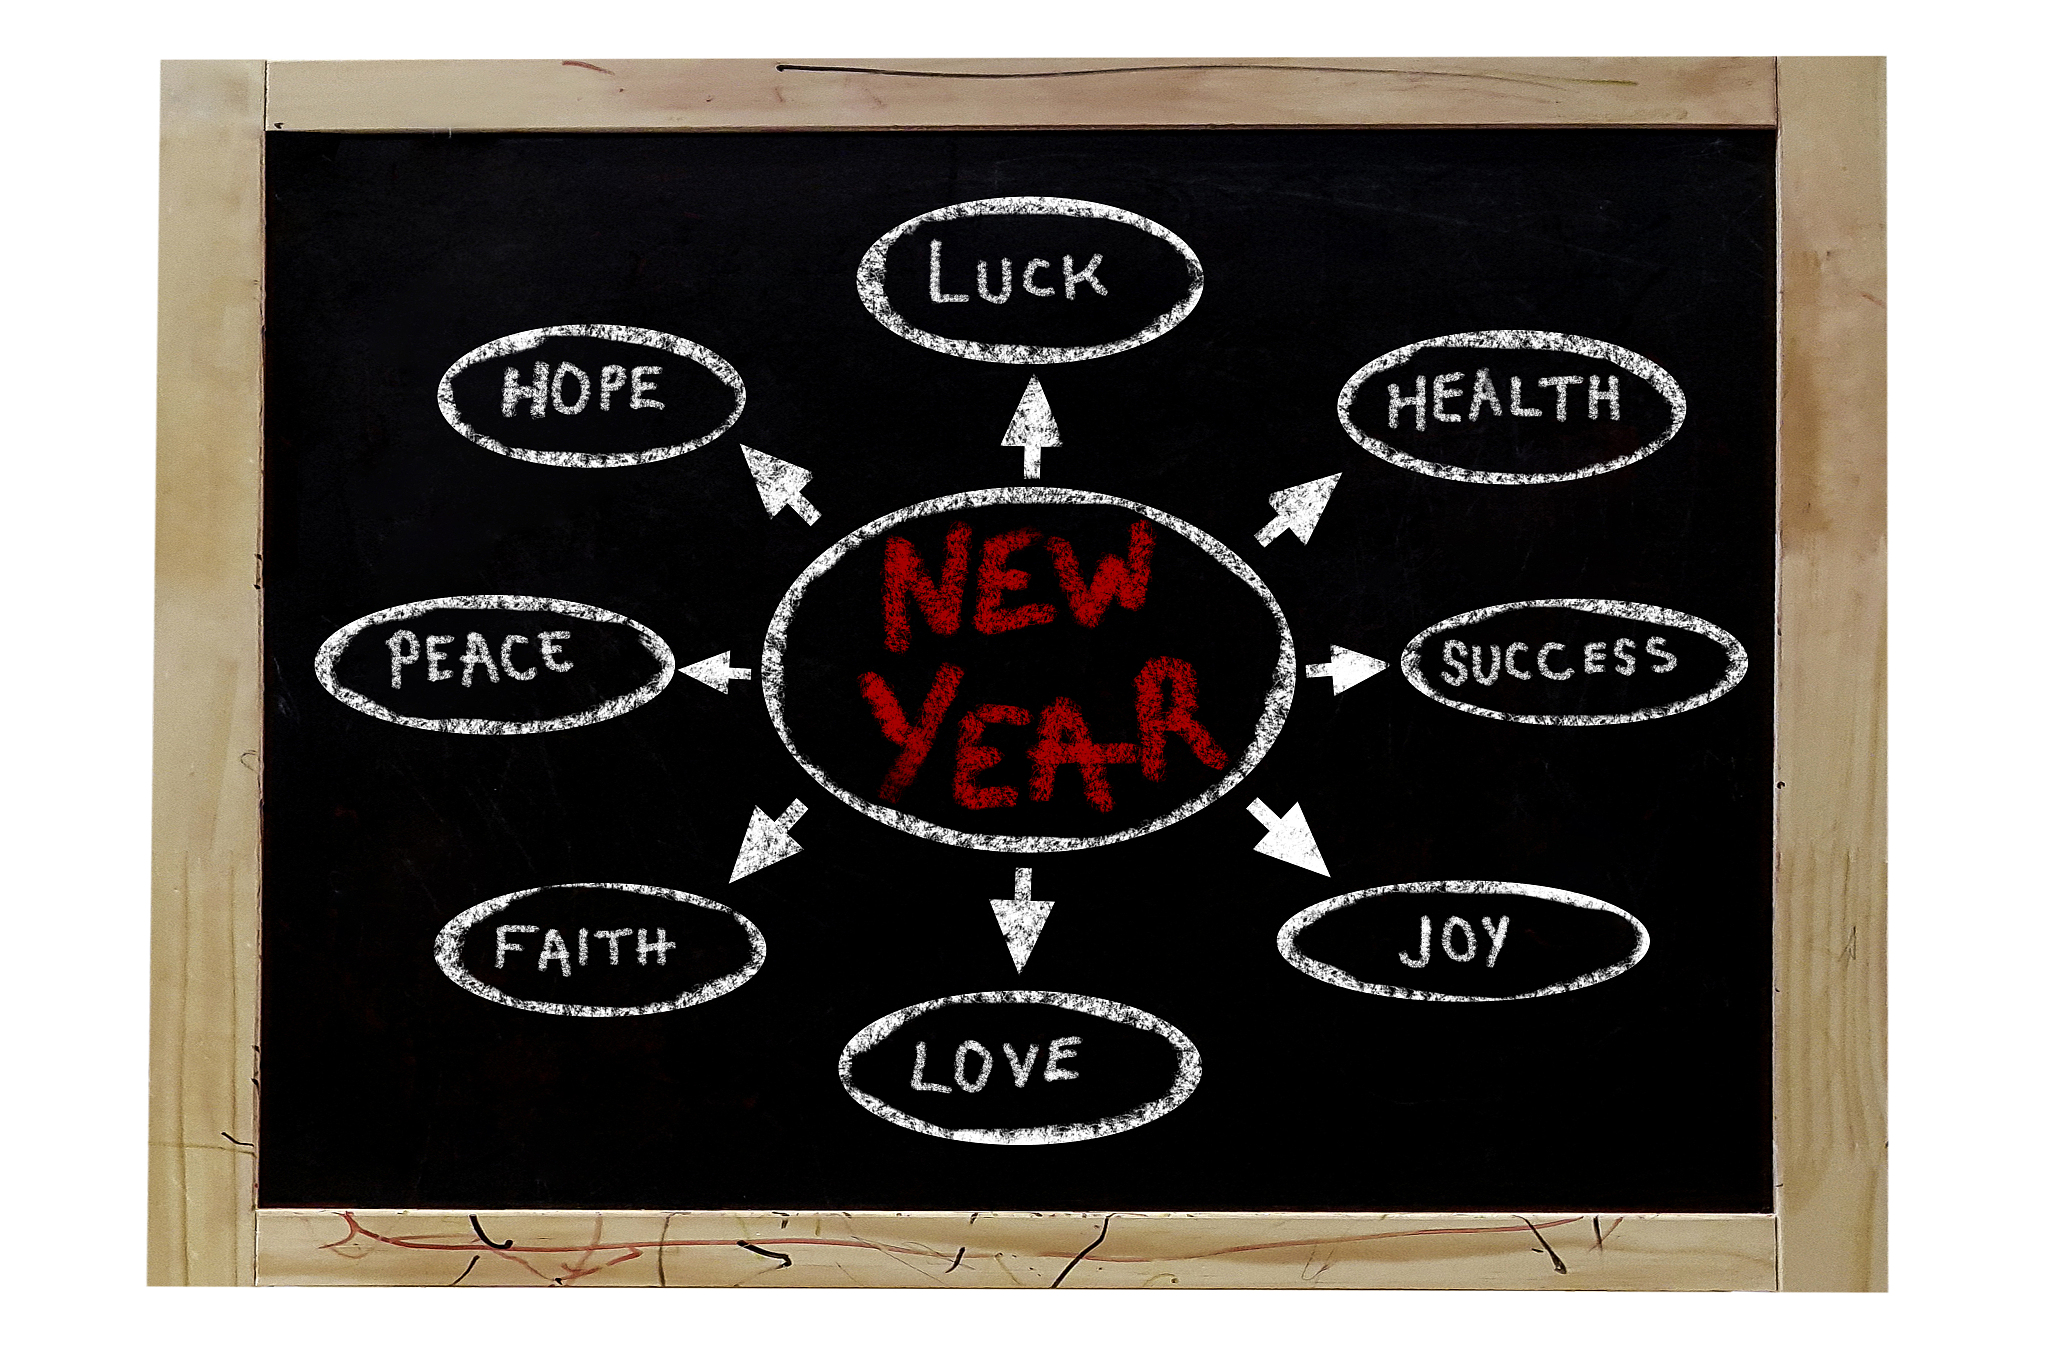 LUCK
HOPE
HEALTH
NEW
YEAR
PEACE
SUCCESS
FAITH
JOY
LOVE